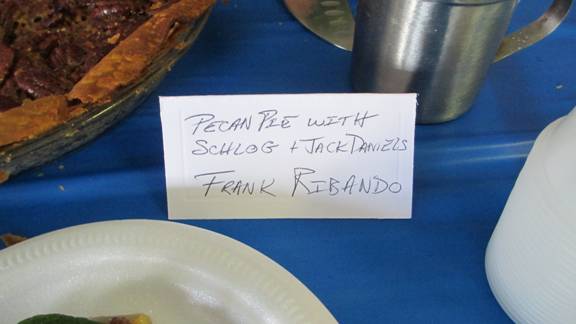 PECAN PIE WITH
SCHLOG + JACK DANIELS
FRANK RIBANDO